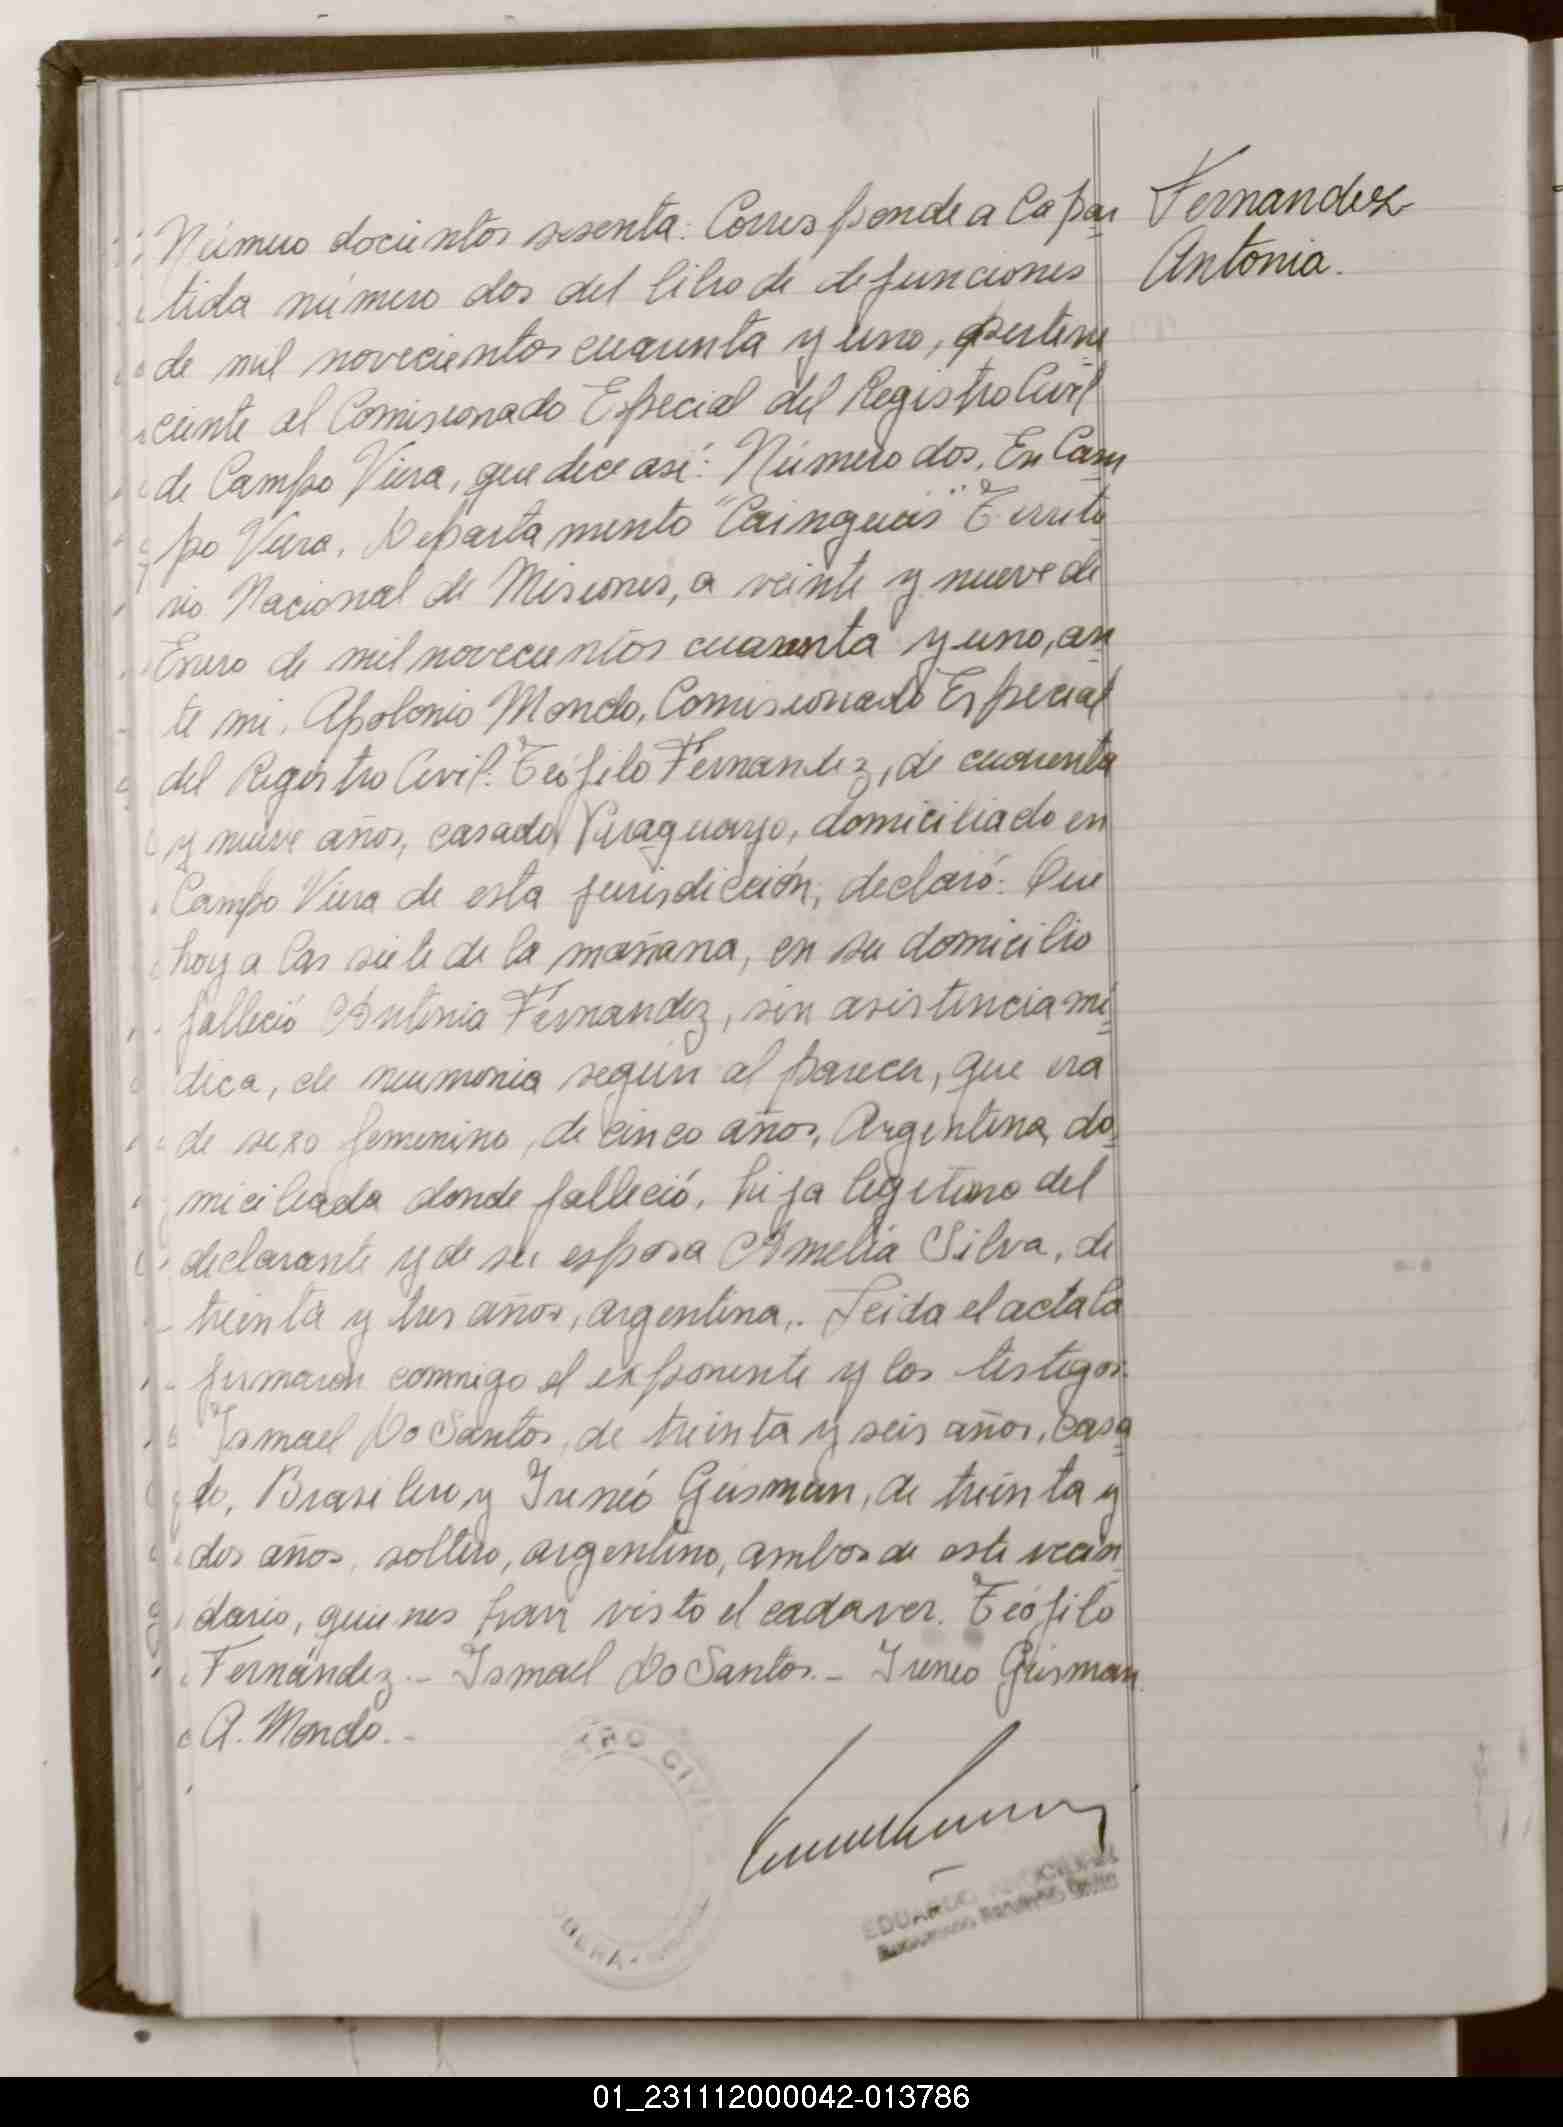 Fernandez
Antonia.
Número docientos sesenta: Corresponde a la par
tida número dos del libro de defunciones
de mil novecientos cuarenta y uno, pertene
ciente al Comisionado Especial del Registro Civil
de Campo Viera, que dice asi: Número dos. En Cam
po Viera, Departamento "Cainguas" Territo
rio Nacional de Misiones, a veinte y nueve de
Enero de mil novecientos cuarenta y uno, an
te mi, Apolonio Mondo, Comisionado Especial
del Registro Civil: Teófilo Fernandez, de cuarenta
y nueve años, casado, Paraguayo, domiciliado en
Campo Viera de esta jurisdicción, declaró: Que
hoy a las siete de la mañana, en su domicilio
falleció Antonia Fernandez, sin asistencia mé
dica, de neumonia según al parecer, que era
de sexo femenino, de cinco años, Argentina, do
miciliada donde falleció, hija legitima del
declarante y de su esposa Amelia Silva, de
treinta y tres años, argentina,. Leida el acta la
firmaron conmigo el exponente y los testigos.
Ismael Do Santos, de treinta y seis años, casa
do, Brasilero y Ireneó Gusman, de treinta y
dos años, soltero, argentino, ambos de este vecin
dario, quienes han visto el cadaver. Teófilo
Fernández.- Ismael Do Santos.- Ireneo Gusman
A. Mondo.-
01_231112000042-013786